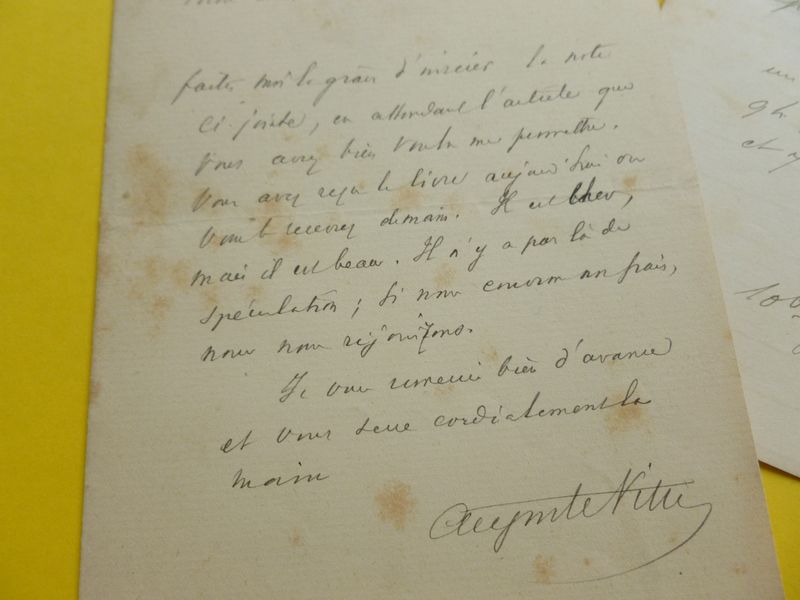 faites moi la grâce d'insérer la note
ci-jointe, en attendant l'article que
vous avez bien voulu me permettre.
Vous avez reçu le livre aujourd'hui ou
vous le recevrez demain. Il est cher,
mais il est beau. Il n'y a pas là de
spéculation ; si nous couvrons nos frais,
nous nous réjouirons.
Je vous remercie bien d'avance
et vous serre cordialement la
main
Auguste
un
et
100